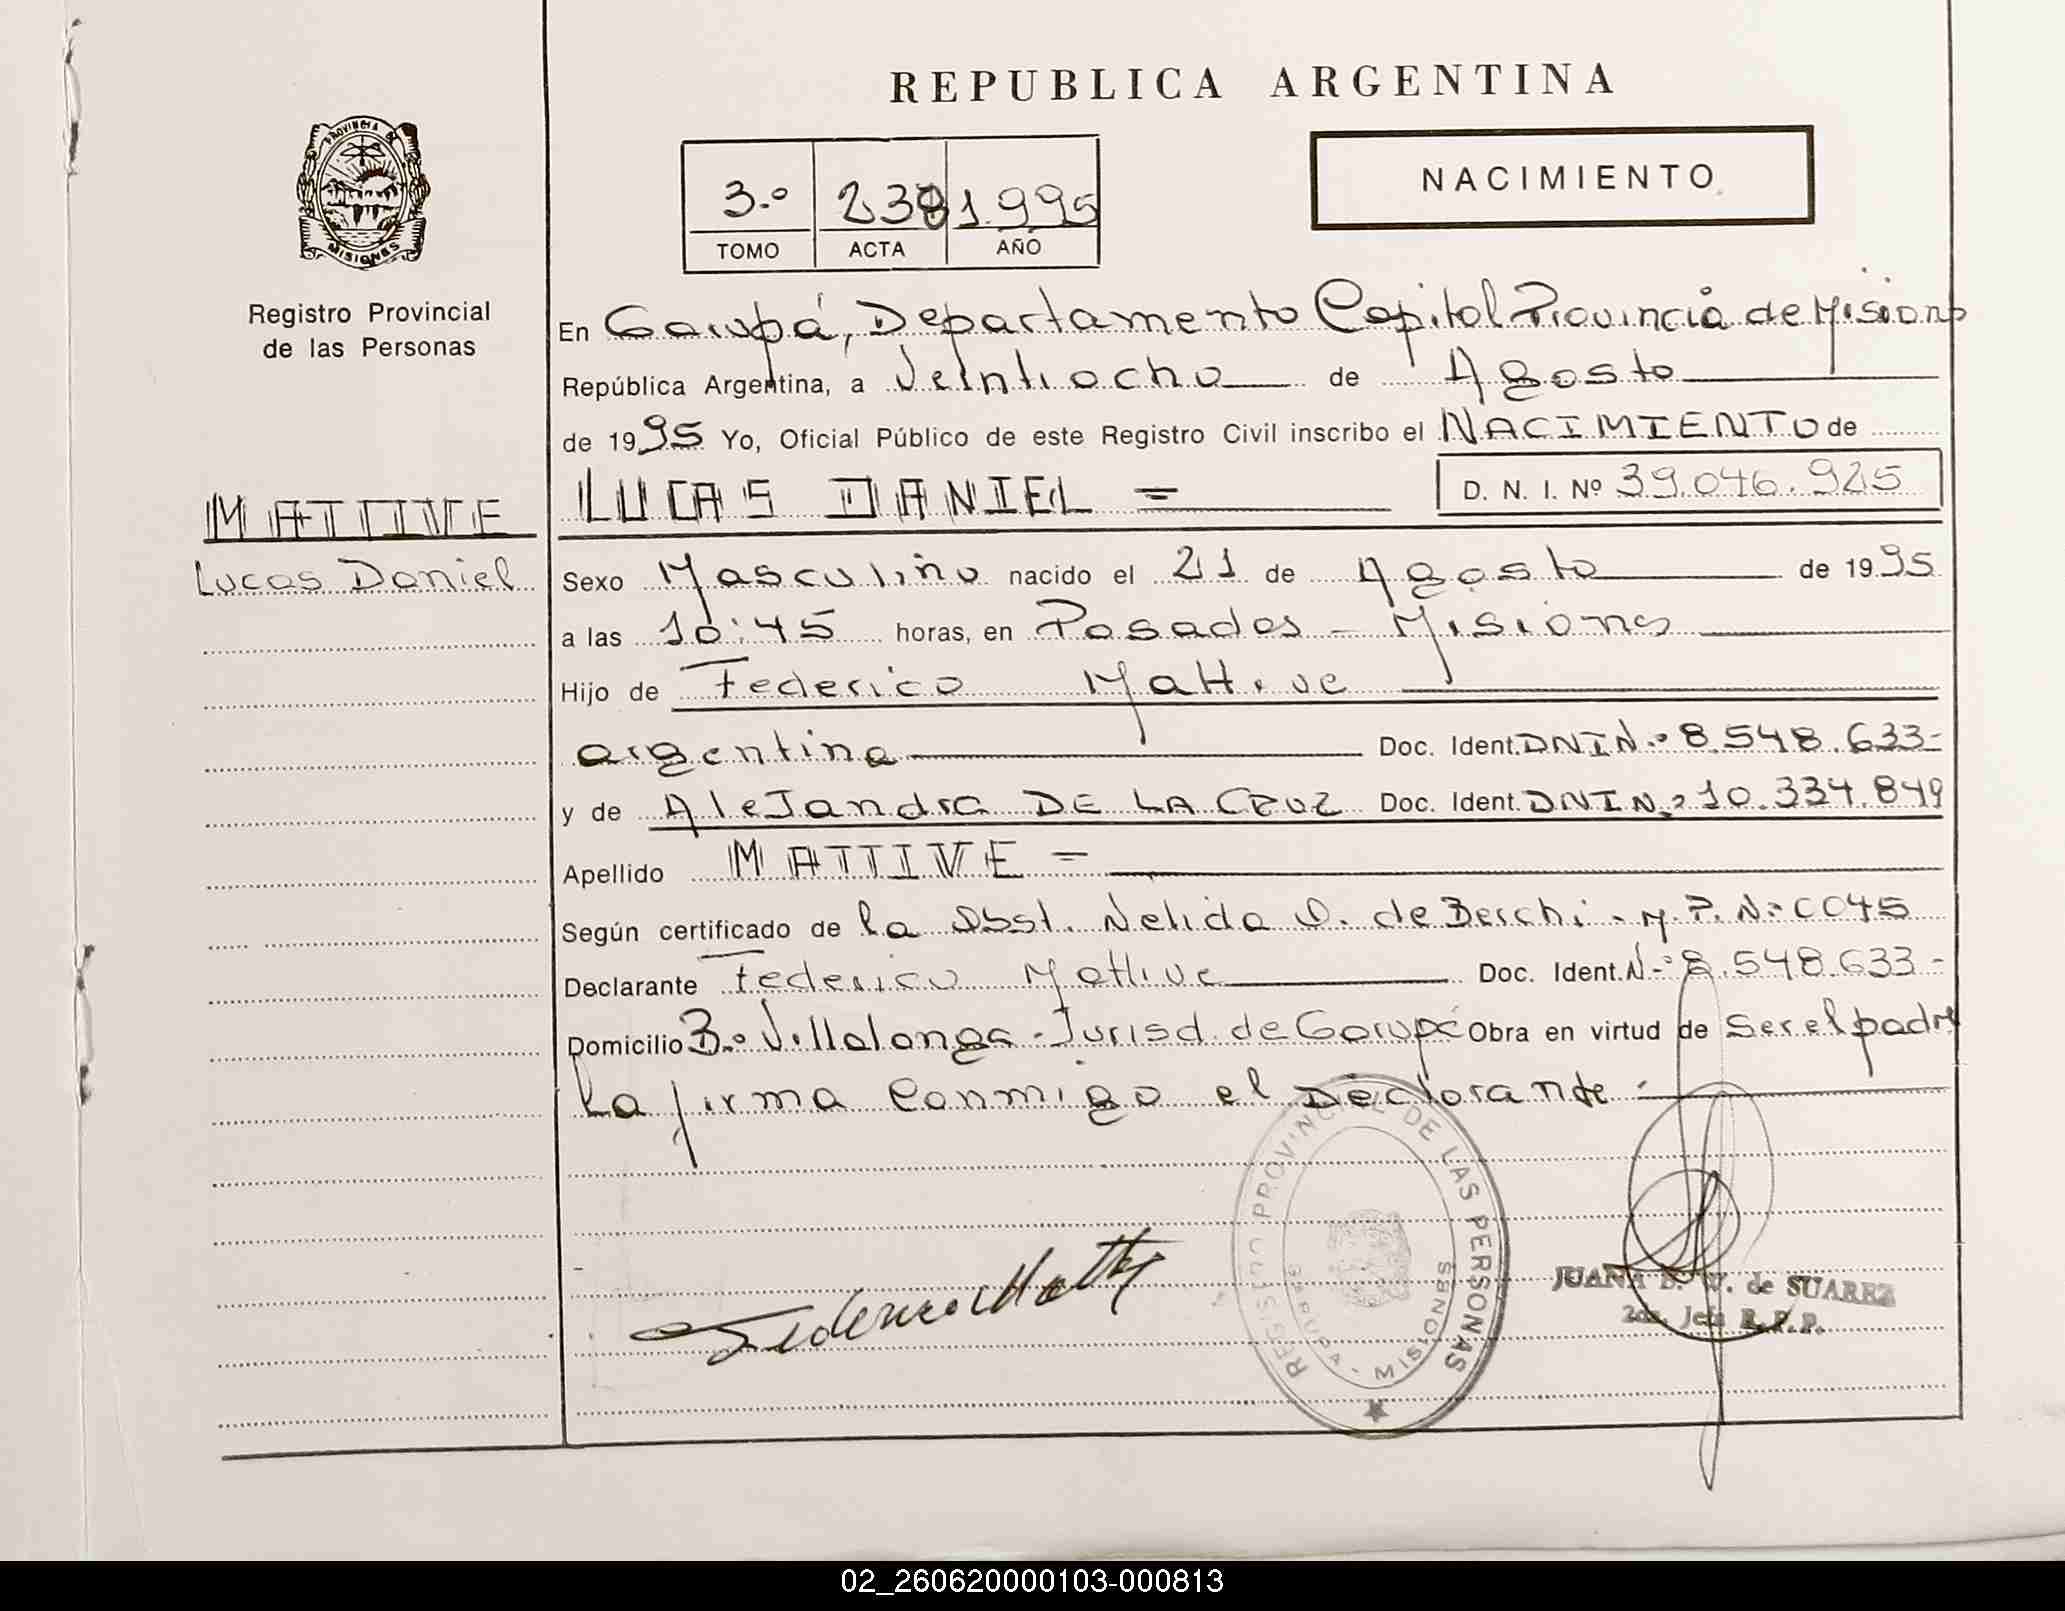 REPUBLICA ARGENTINA
PROVINCIA DE
MISIONES
Registro Provincial
de las Personas
3.º 238 1995
TOMO ACTA AÑO
NACIMIENTO
En Garupá, Departamento Capital Provincia de Misiones
República Argentina, a Veintiocho de Agosto
de 1995 Yo, Oficial Público de este Registro Civil inscribo el NACIMIENTO de
LUCAS DANIEL =
D. N. I. Nº 39.046.925
MATTIVE
Lucas Daniel
Sexo Masculino nacido el 21 de Agosto de 1995
a las 10:45 horas, en Posadas - Misiones
Hijo de Federico Mattive
argentina Doc. Ident. DNI N.º 8.548.633-
y de Alejandra DE LA CRUZ Doc. Ident. DNI N.º 10.334.849
Apellido MATTIVE =
Según certificado de la Obst. Nelida O. de Berchi - M.P.Nº 0045
Declarante Federico Mattive Doc. Ident. Nº 8.548.633-
Domicilio Bº Villalonga - Jurisd. de Garupá Obra en virtud de ser el padre
La firma conmigo el Declarante:
REGISTRO PROVINCIAL DE LAS PERSONAS
GARUPA - MISIONES
Federico Matti
JUANA de SUAREZ
2da. Jefa R.P.P.
02_260620000103-000813